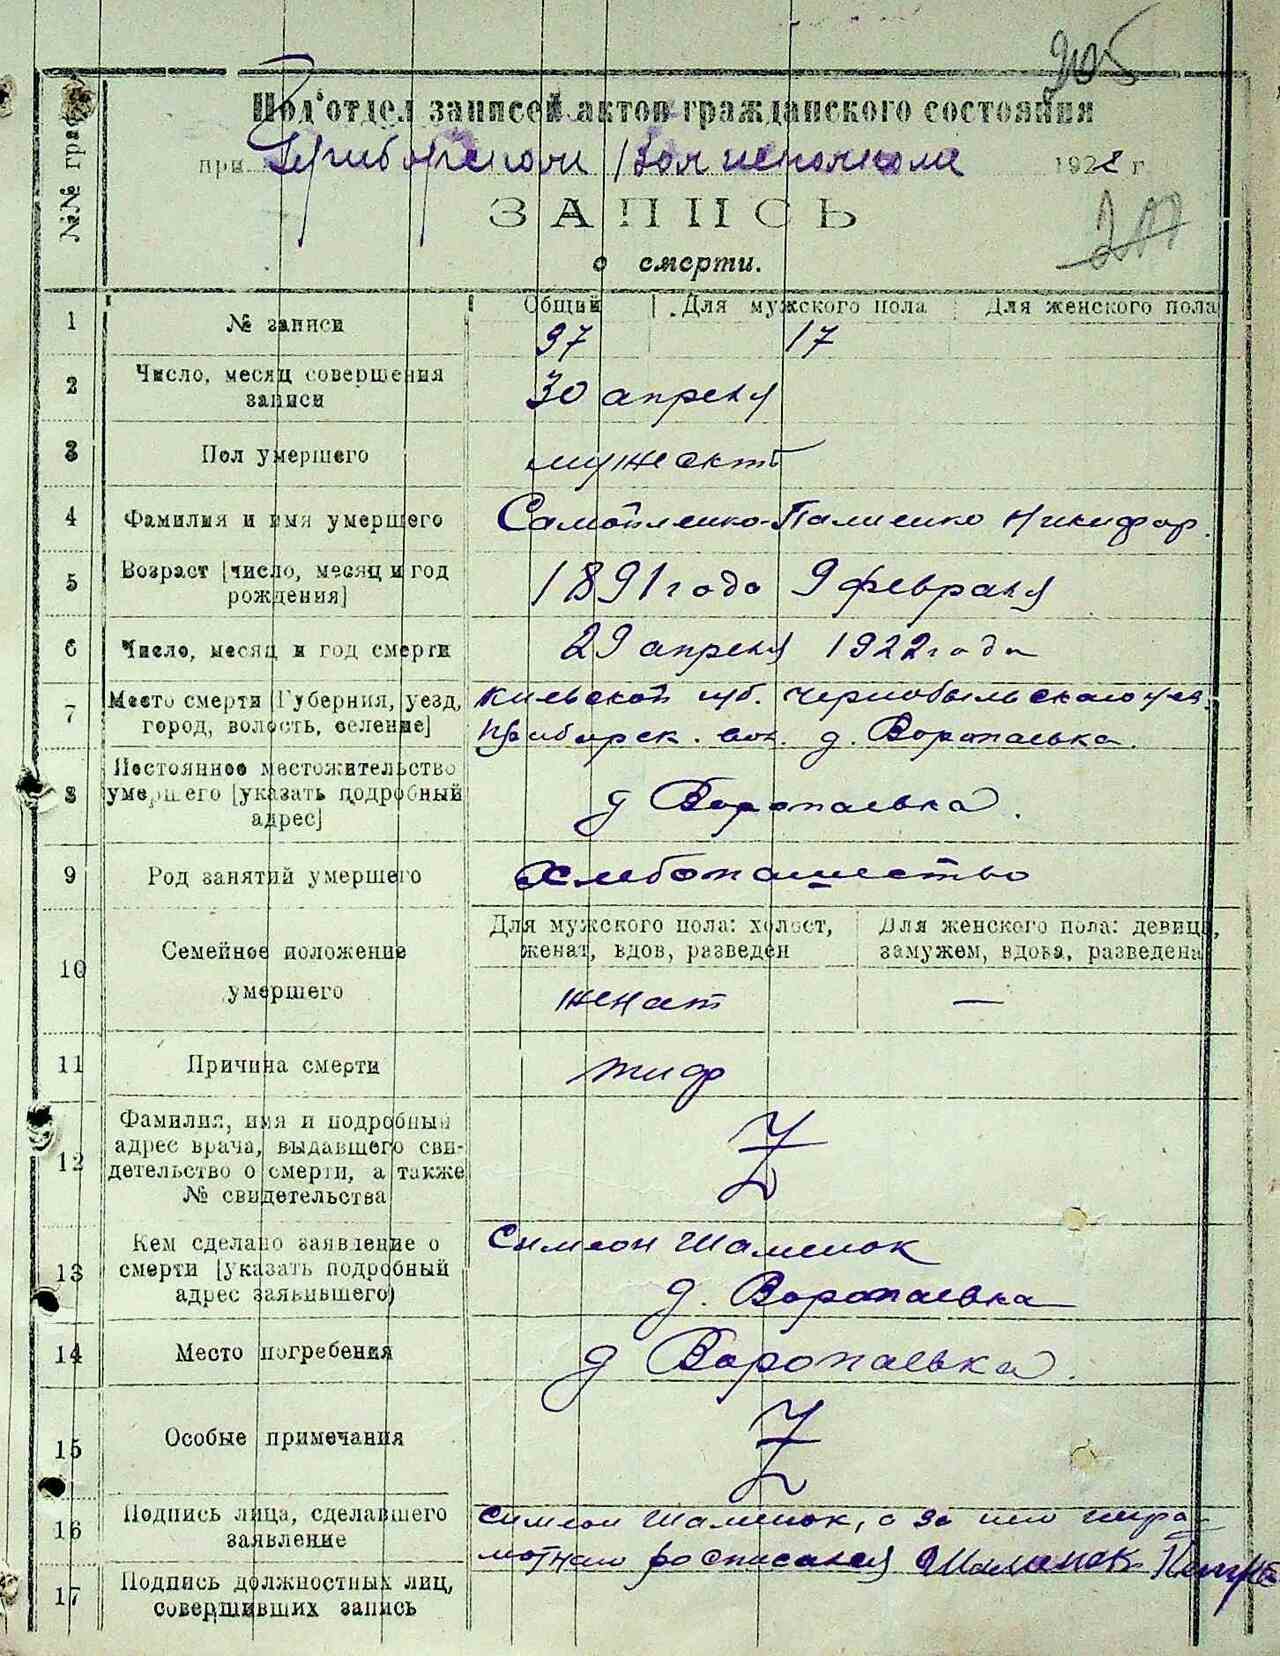 205
Под'отдел записей актов гражданского состояния
при Прибирском Волисполкоме 1922 г
207
ЗАПИСЬ
о смерти.
№№ граф
Общий Для мужского пола Для женского пола
1 № записи 97 17
2 Число, месяц совершения
записи 30 апреля
3 Пол умершего мужской
4 Фамилия и имя умершего Самойленко-Палиенко Никифор.
5 Возраст [число, месяц и год
рождения] 1891 года 9 февраля
6 Число, месяц и год смерти 29 апреля 1922 года
7 Место смерти [Губерния, уезд, Киевской губ. Чернобыльскаго уез.
город, волость, селение] Прибирск. вол. д. Воропаевка.
8 Постоянное местожительство
умершего [указать подробный д Воропаевка.
адрес]
9 Род занятий умершего Хлебопашество
10 Семейное положение
умершего
Для мужского пола: холост,
женат, вдов, разведен
Для женского пола: девица,
замужем, вдова, разведена
женат —
11 Причина смерти тиф
12 Фамилия, имя и подробный
адрес врача, выдавшего сви-
детельство о смерти, а также
№ свидетельства Z
13 Кем сделано заявление о Симеон Шаменок
смерти [указать подробный
адрес заявившего) д. Воропаевка
14 Место погребения д Воропаевка.
15 Особые примечания Z
16 Подпись лица, сделавшего Симеон Шаменок, а за него негра-
заявление мотнаго росписался Шаменок
17 Подпись должностных лиц,
совершивших запись